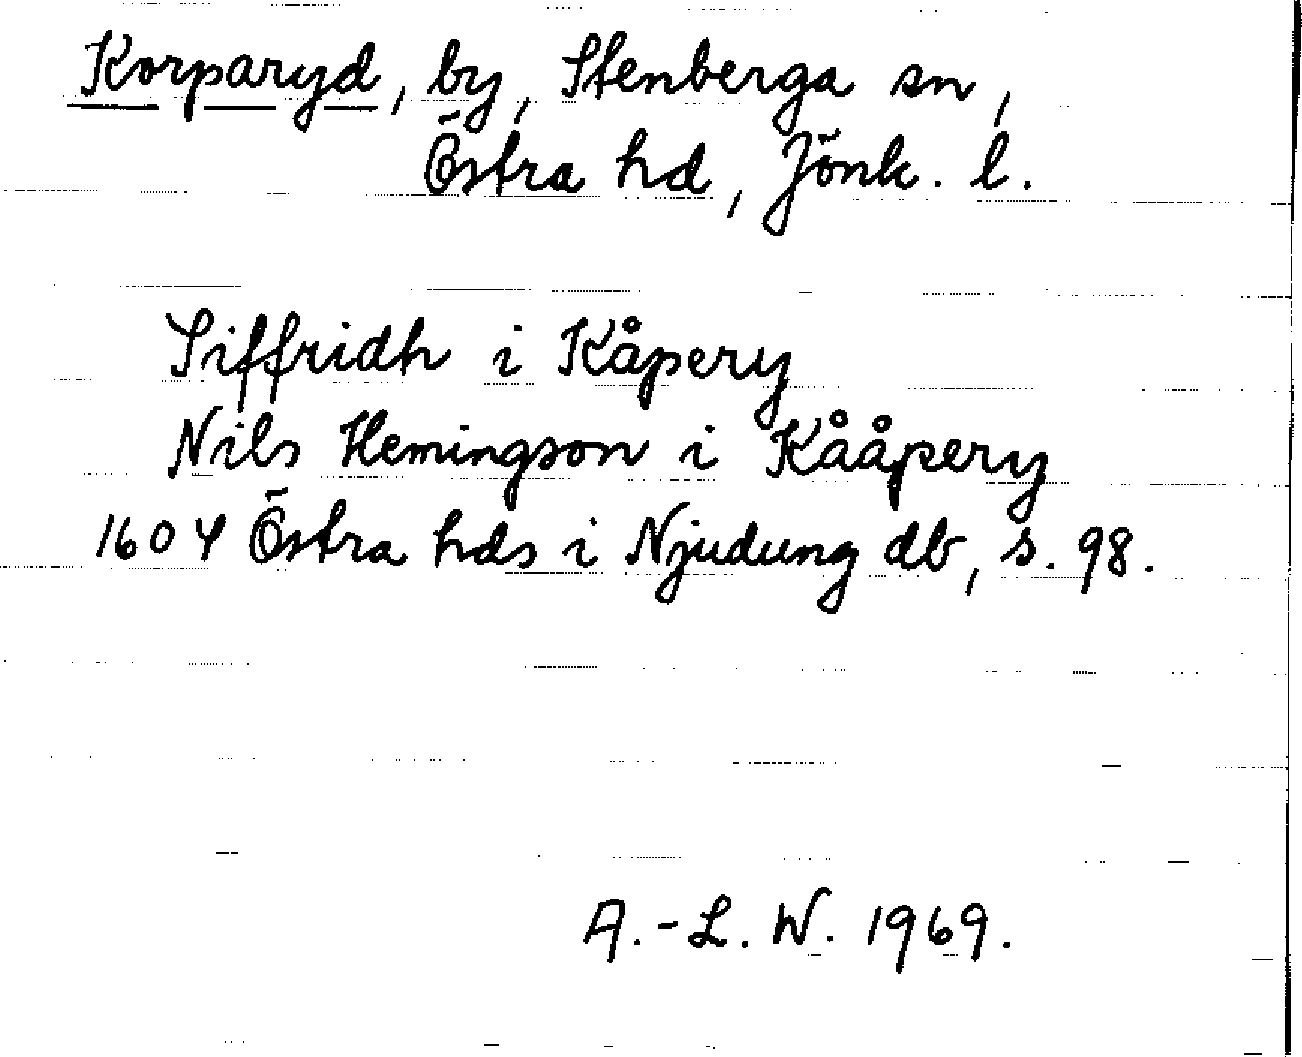 Korparyd, by, Stenberga sn,
Östra hd, Jönk. l.
Siffridh i Kåpery
Nils Hemingson i Kååpery
1604 Östra hds i Njudung db, s. 98.
A.-L. W. 1969.